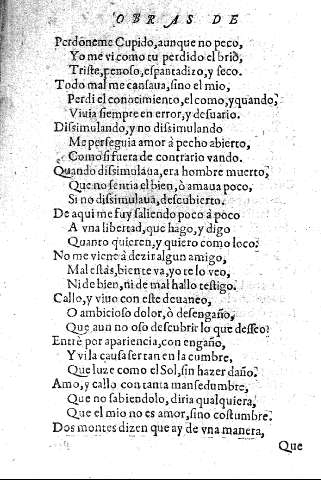 OBRAS DE
Perdóneme Cupido, aunque no peco,
Yo me vi como tu perdido el brio,
Triste, penoso, espantadizo, y seco.
Todo mal me cansaua, sino el mio,
Perdi el conocimiento, el como, y quando,
Viuia siempre en error, y desuario.
Dissimulando, y no dissimulando
Me perseguia amor à pecho abierto,
Como si fuera de contrario vando.
Quando dissimulaua, era hombre muerto,
Que no sentia el bien, ò amaua poco,
Si no dissimulaua, descubierto.
De aqui me fuy saliendo poco à poco
A vna libertad, que hago, y digo
Quanto quieren, y quiero como loco.
No me viene à dezir algun amigo,
Mal estàs, bien te va, yo te lo veo,
Ni de bien, ni de mal hallo testigo.
Callo, y viuo con este deuaneo,
O ambicioso dolor, ò desengaño,
Que aun no oso descubrir lo que desseo.
Entrè por apariencia, con engaño,
Y vi la causa ser tan en la cumbre,
Que luze como el Sol, sin hazer daño.
Amo, y callo con tanta mansedumbre,
Que no sabiendolo, diria qualquiera,
Que el mio no es amor, sino costumbre.
Dos montes dizen que ay de vna manera,
Que